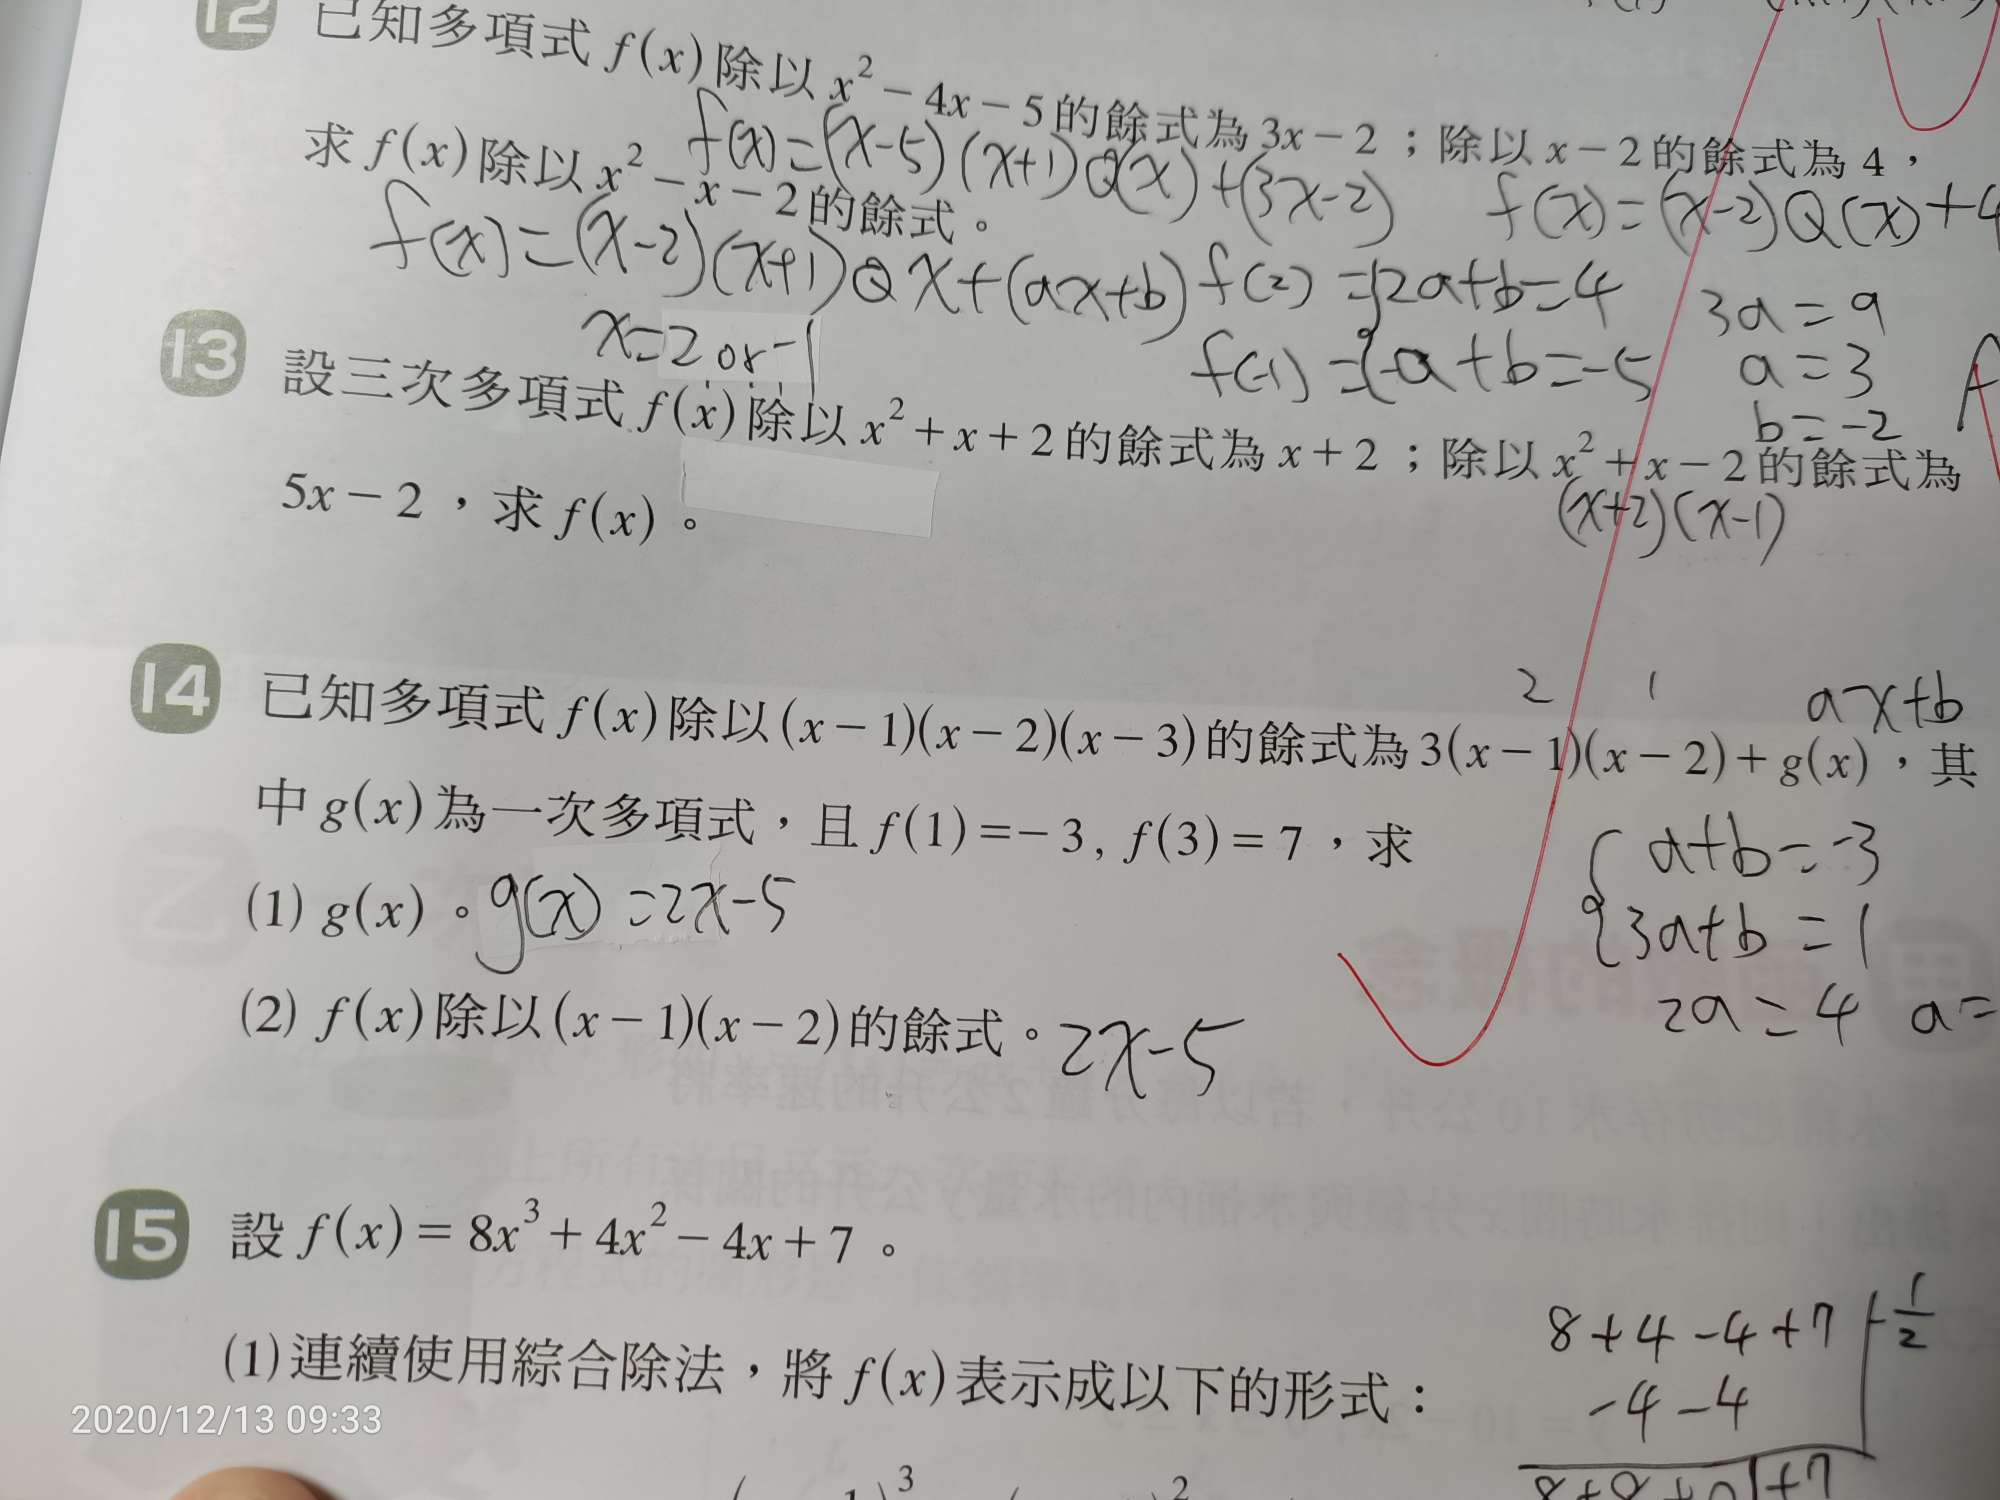 12 已知多項式 f(x) 除以 x² − 4x − 5 的餘式為 3x − 2；除以 x − 2 的餘式為 4，
f(x) = (x-5)(x+1)Q(x) + (3x-2)
求 f(x) 除以 x² − x − 2 的餘式。
f(x) = (x-2)Q(x) + 4
f(x) = (x-2)(x+1)Qx + (ax+b)
f(2) = {2a+b=4
f(-1) = {-a+b=-5
3a = 9
a = 3
b = -2
x=2 or -1
13 設三次多項式 f(x) 除以 x² + x + 2 的餘式為 x + 2；除以 x² + x − 2 的餘式為
(x+2)(x-1)
5x − 2，求 f(x)。
2 1 ax+b
14 已知多項式 f(x) 除以 (x − 1)(x − 2)(x − 3) 的餘式為 3(x − 1)(x − 2) + g(x)，其
中 g(x) 為一次多項式，且 f(1) = − 3, f(3) = 7，求
{ a+b = -3
3a+b = 1
2a = 4 a=
(1) g(x)。 g(x) = 2x-5
(2) f(x) 除以 (x − 1)(x − 2) 的餘式。 2x-5
15 設 f(x) = 8x³ + 4x² − 4x + 7。
(1) 連續使用綜合除法，將 f(x) 表示成以下的形式：
8+4-4+7 | -1/2
-4-4
8+0+7
2020/12/13 09:33